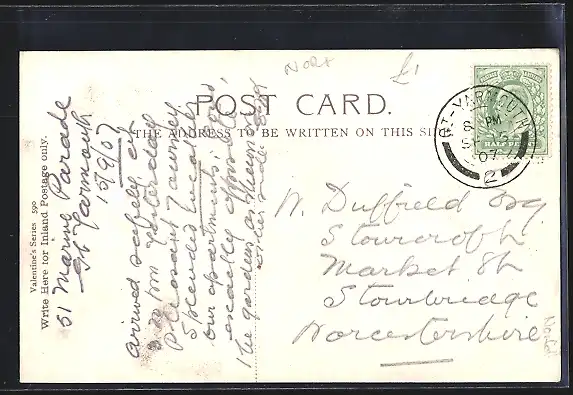 Nor
£1
POST CARD.
THE ADDRESS TO BE WRITTEN ON THIS SI
GT-YARMOUTH
8 PM
SP 15
07
2
HALFPENNY
Valentine's Series 590
Write Here for Inland Postage only.
51 Marine Parade
Gt Yarmouth
15/9/07
arrived safely at
5 30 pm yesterday
pleasant journey.
Splended locality
our apartments
exactly opposite
the gardens
W. Duffield Esq
Stourcroft
Market St
Stourbridge
Worcestershire